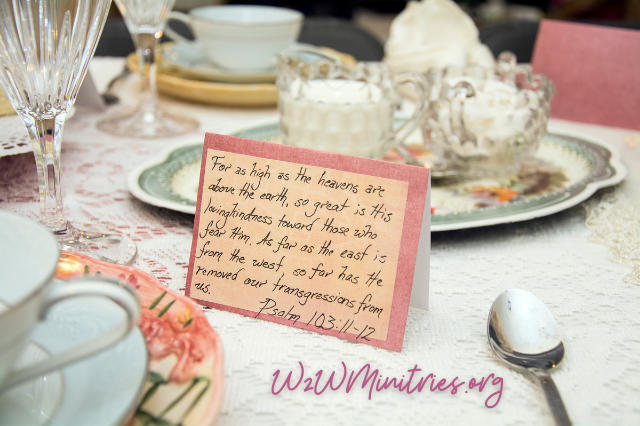 For as high as the heavens are
above the earth, so great is His
lovingkindness toward those who
fear Him. As far as the east is
from the west, so far has He
removed our transgressions from
us.
Psalm 103:11-12
W2WMinitries.org